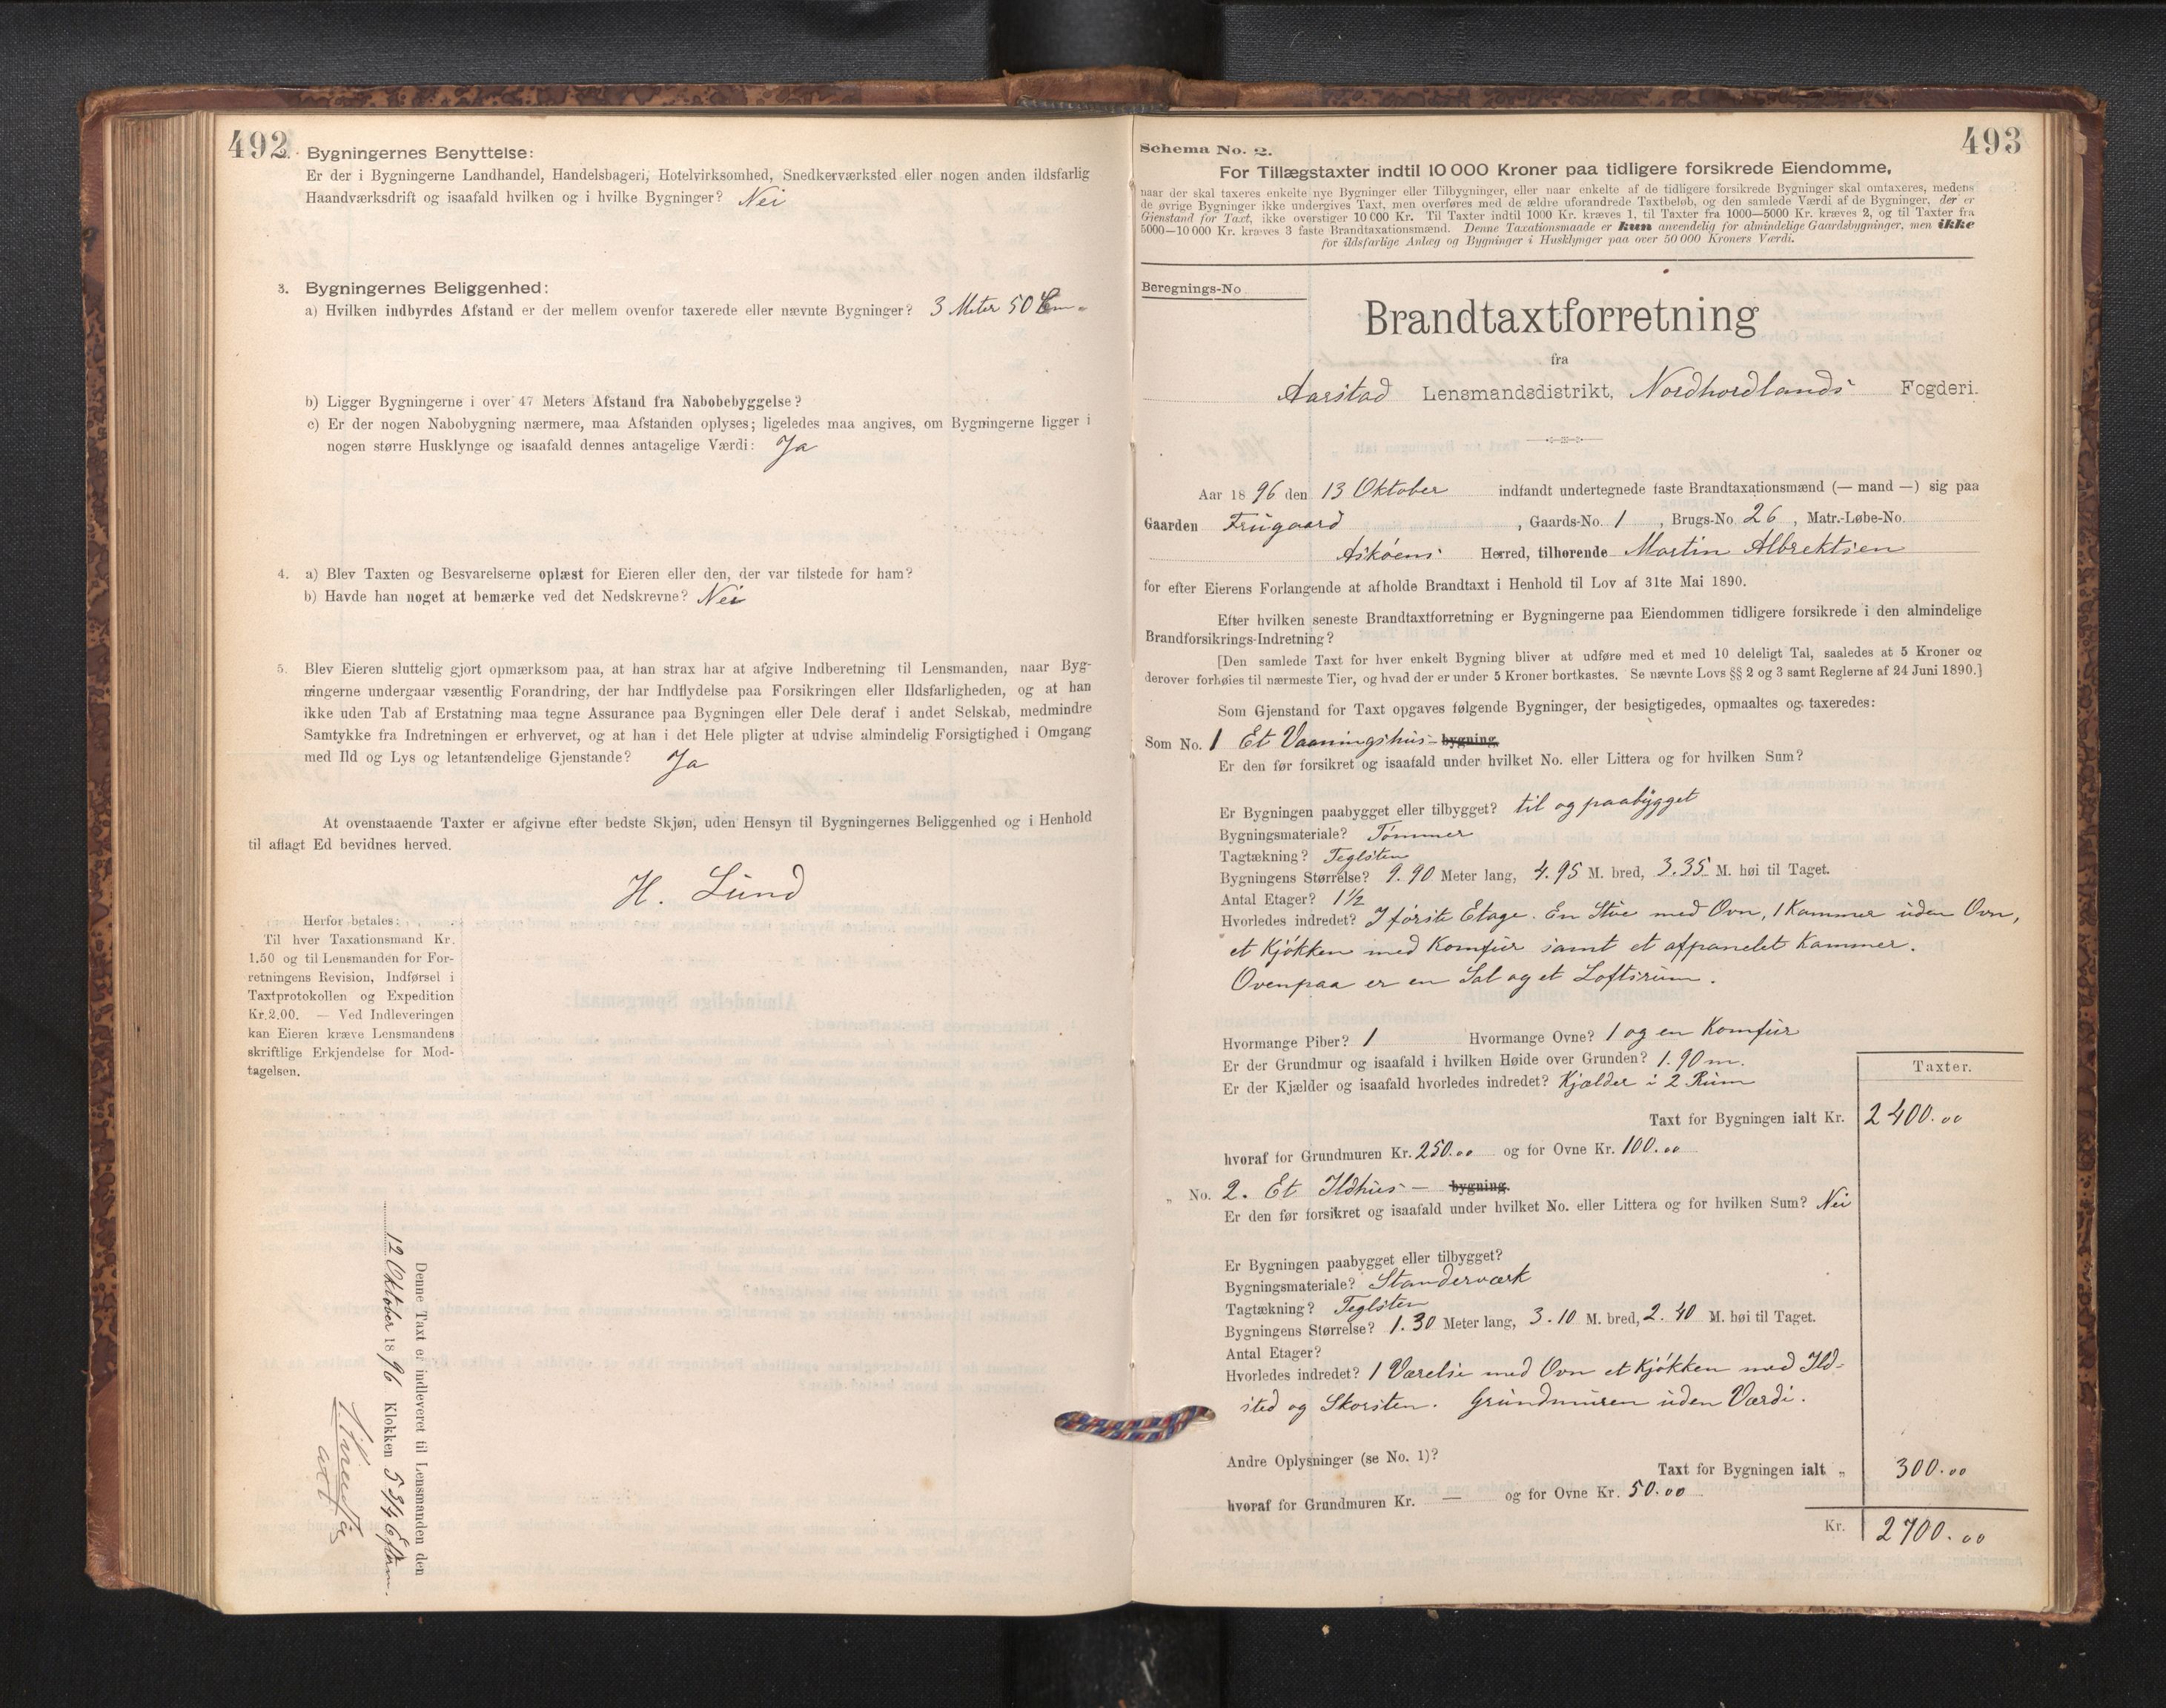 492
2. Bygningernes Benyttelse:
Er der i Bygningerne Landhandel, Handelsbageri, Hotelvirksomhed, Snedkerværksted eller nogen anden ildsfarlig
Haandværksdrift og isaafald hvilken og i hvilke Bygninger? Nei
3. Bygningernes Beliggenhed:
a) Hvilken indbyrdes Afstand er der mellem ovenfor taxerede eller nævnte Bygninger? 3 Meter 50 Cm.
b) Ligger Bygningerne i over 47 Meters Afstand fra Nabobebyggelse?
c) Er der nogen Nabobygning nærmere, maa Afstanden oplyses; ligeledes maa angives, om Bygningerne ligger i
nogen større Husklynge og isaafald dennes antagelige Værdi: Ja
4. a) Blev Taxten og Besvarelserne oplæst for Eieren eller den, der var tilstede for ham?
b) Havde han noget at bemærke ved det Nedskrevne? Nei
5. Blev Eieren sluttelig gjort opmærksom paa, at han strax har at afgive Indberetning til Lensmanden, naar Byg-
ningerne undergaar væsentlig Forandring, der har Indflydelse paa Forsikringen eller Ildsfarligheden, og at han
ikke uden Tab af Erstatning maa tegne Assurance paa Bygningen eller Dele deraf i andet Selskab, medmindre
Samtykke fra Indretningen er erhvervet, og at han i det Hele pligter at udvise almindelig Forsigtighed i Omgang
med Ild og Lys og letantændelige Gjenstande? Ja
At ovenstaaende Taxter er afgivne efter bedste Skjøn, uden Hensyn til Bygningernes Beliggenhed og i Henhold
til aflagt Ed bevidnes herved.
H. Lund
Herfor betales:
Til hver Taxationsmand Kr.
1.50 og til Lensmanden for For-
retningens Revision, Indførsel i
Taxtprotokollen og Expedition
Kr. 2.00. — Ved Indleveringen
kan Eieren kræve Lensmandens
skriftlige Erkjendelse for Mod-
tagelsen.
Denne Taxt er indleveret til Lensmanden den
12 Oktober 1896 Klokken 5 3/4 Efterm.
493
Schema No. 2.
For Tillægstaxter indtil 10 000 Kroner paa tidligere forsikrede Eiendomme,
naar der skal taxeres enkelte nye Bygninger eller Tilbygninger, eller naar enkelte af de tidligere forsikrede Bygninger skal omtaxeres, medens
de øvrige Bygninger ikke undergives Taxt, men overføres med de ældre uforandrede Taxtbeløb, og den samlede Værdi af de Bygninger, der er
Gjenstand for Taxt, ikke overstiger 10 000 Kr. Til Taxter indtil 1000 Kr. kræves 1, til Taxter fra 1000—5000 Kr. kræves 2, og til Taxter fra
5000—10 000 Kr. kræves 3 faste Brandtaxationsmænd. Denne Taxationsmaade er kun anvendelig for almindelige Gaardsbygninger, men ikke
for ildsfarlige Anlæg og Bygninger i Husklynger paa over 50 000 Kroners Værdi.
Beregnings-No
Brandtaxtforretning
fra
Aarstad Lensmandsdistrikt, Nordhordlands Fogderi.
Aar 1896 den 13 Oktober indfandt undertegnede faste Brandtaxationsmænd (— mand —) sig paa
Gaarden Frugaard, Gaards-No. 1, Brugs-No. 26, Matr.-Løbe-No.
Askøens Herred, tilhørende Martin Albrektsen
for efter Eierens Forlangende at afholde Brandtaxt i Henhold til Lov af 31te Mai 1890.
Efter hvilken seneste Brandtaxtforretning er Bygningerne paa Eiendommen tidligere forsikrede i den almindelige
Brandforsikrings-Indretning?
[Den samlede Taxt for hver enkelt Bygning bliver at udføre med et med 10 deleligt Tal, saaledes at 5 Kroner og
derover forhøies til nærmeste Tier, og hvad der er under 5 Kroner bortkastes. Se nævnte Lovs §§ 2 og 3 samt Reglerne af 24 Juni 1890.]
Som Gjenstand for Taxt opgaves følgende Bygninger, der besigtigedes, opmaaltes og taxeredes:
Som No. 1 Et Vaaningshus- bygning.
Er den før forsikret og isaafald under hvilket No. eller Littera og for hvilken Sum?
Er Bygningen paabygget eller tilbygget? til og paabygget
Bygningsmateriale? Tømmer
Tagtækning? Teglsten
Bygningens Størrelse? 9.90 Meter lang, 4.95 M. bred, 3.35 M. høi til Taget.
Antal Etager? 1½
Hvorledes indredet? I første Etage. En Stue med Ovn, 1 Kammer uden Ovn,
et Kjøkken med Komfur samt et afpanelet Kammer.
Ovenpaa er en Sal og et Loftsrum.
Hvormange Piber? 1 Hvormange Ovne? 1 og en Komfur
Er der Grundmur og isaafald i hvilken Høide over Grunden? 1.90 m.
Er der Kjælder og isaafald hvorledes indredet? Kjælder i 2 Rum
Taxter.
Taxt for Bygningen ialt Kr. 2400.00
hvoraf for Grundmuren Kr. 250.00 og for Ovne Kr. 100.00
„ No. 2. Et Ildhus — bygning.
Er den før forsikret og isaafald under hvilket No. eller Littera og for hvilken Sum? Nei
Er Bygningen paabygget eller tilbygget?
Bygningsmateriale? Standerværk
Tagtækning? Teglsten
Bygningens Størrelse? 1.30 Meter lang, 3.10 M. bred, 2.40 M. høi til Taget.
Antal Etager?
Hvorledes indredet? 1 Værelse med Ovn et Kjøkken med Ild-
sted og Skorsten. Grundmuren uden Værdi.
Andre Oplysninger (se No. 1)?
Taxt for Bygningen ialt „ 300.00
hvoraf for Grundmuren Kr. — og for Ovne Kr. 50.00
Kr. 2700.00